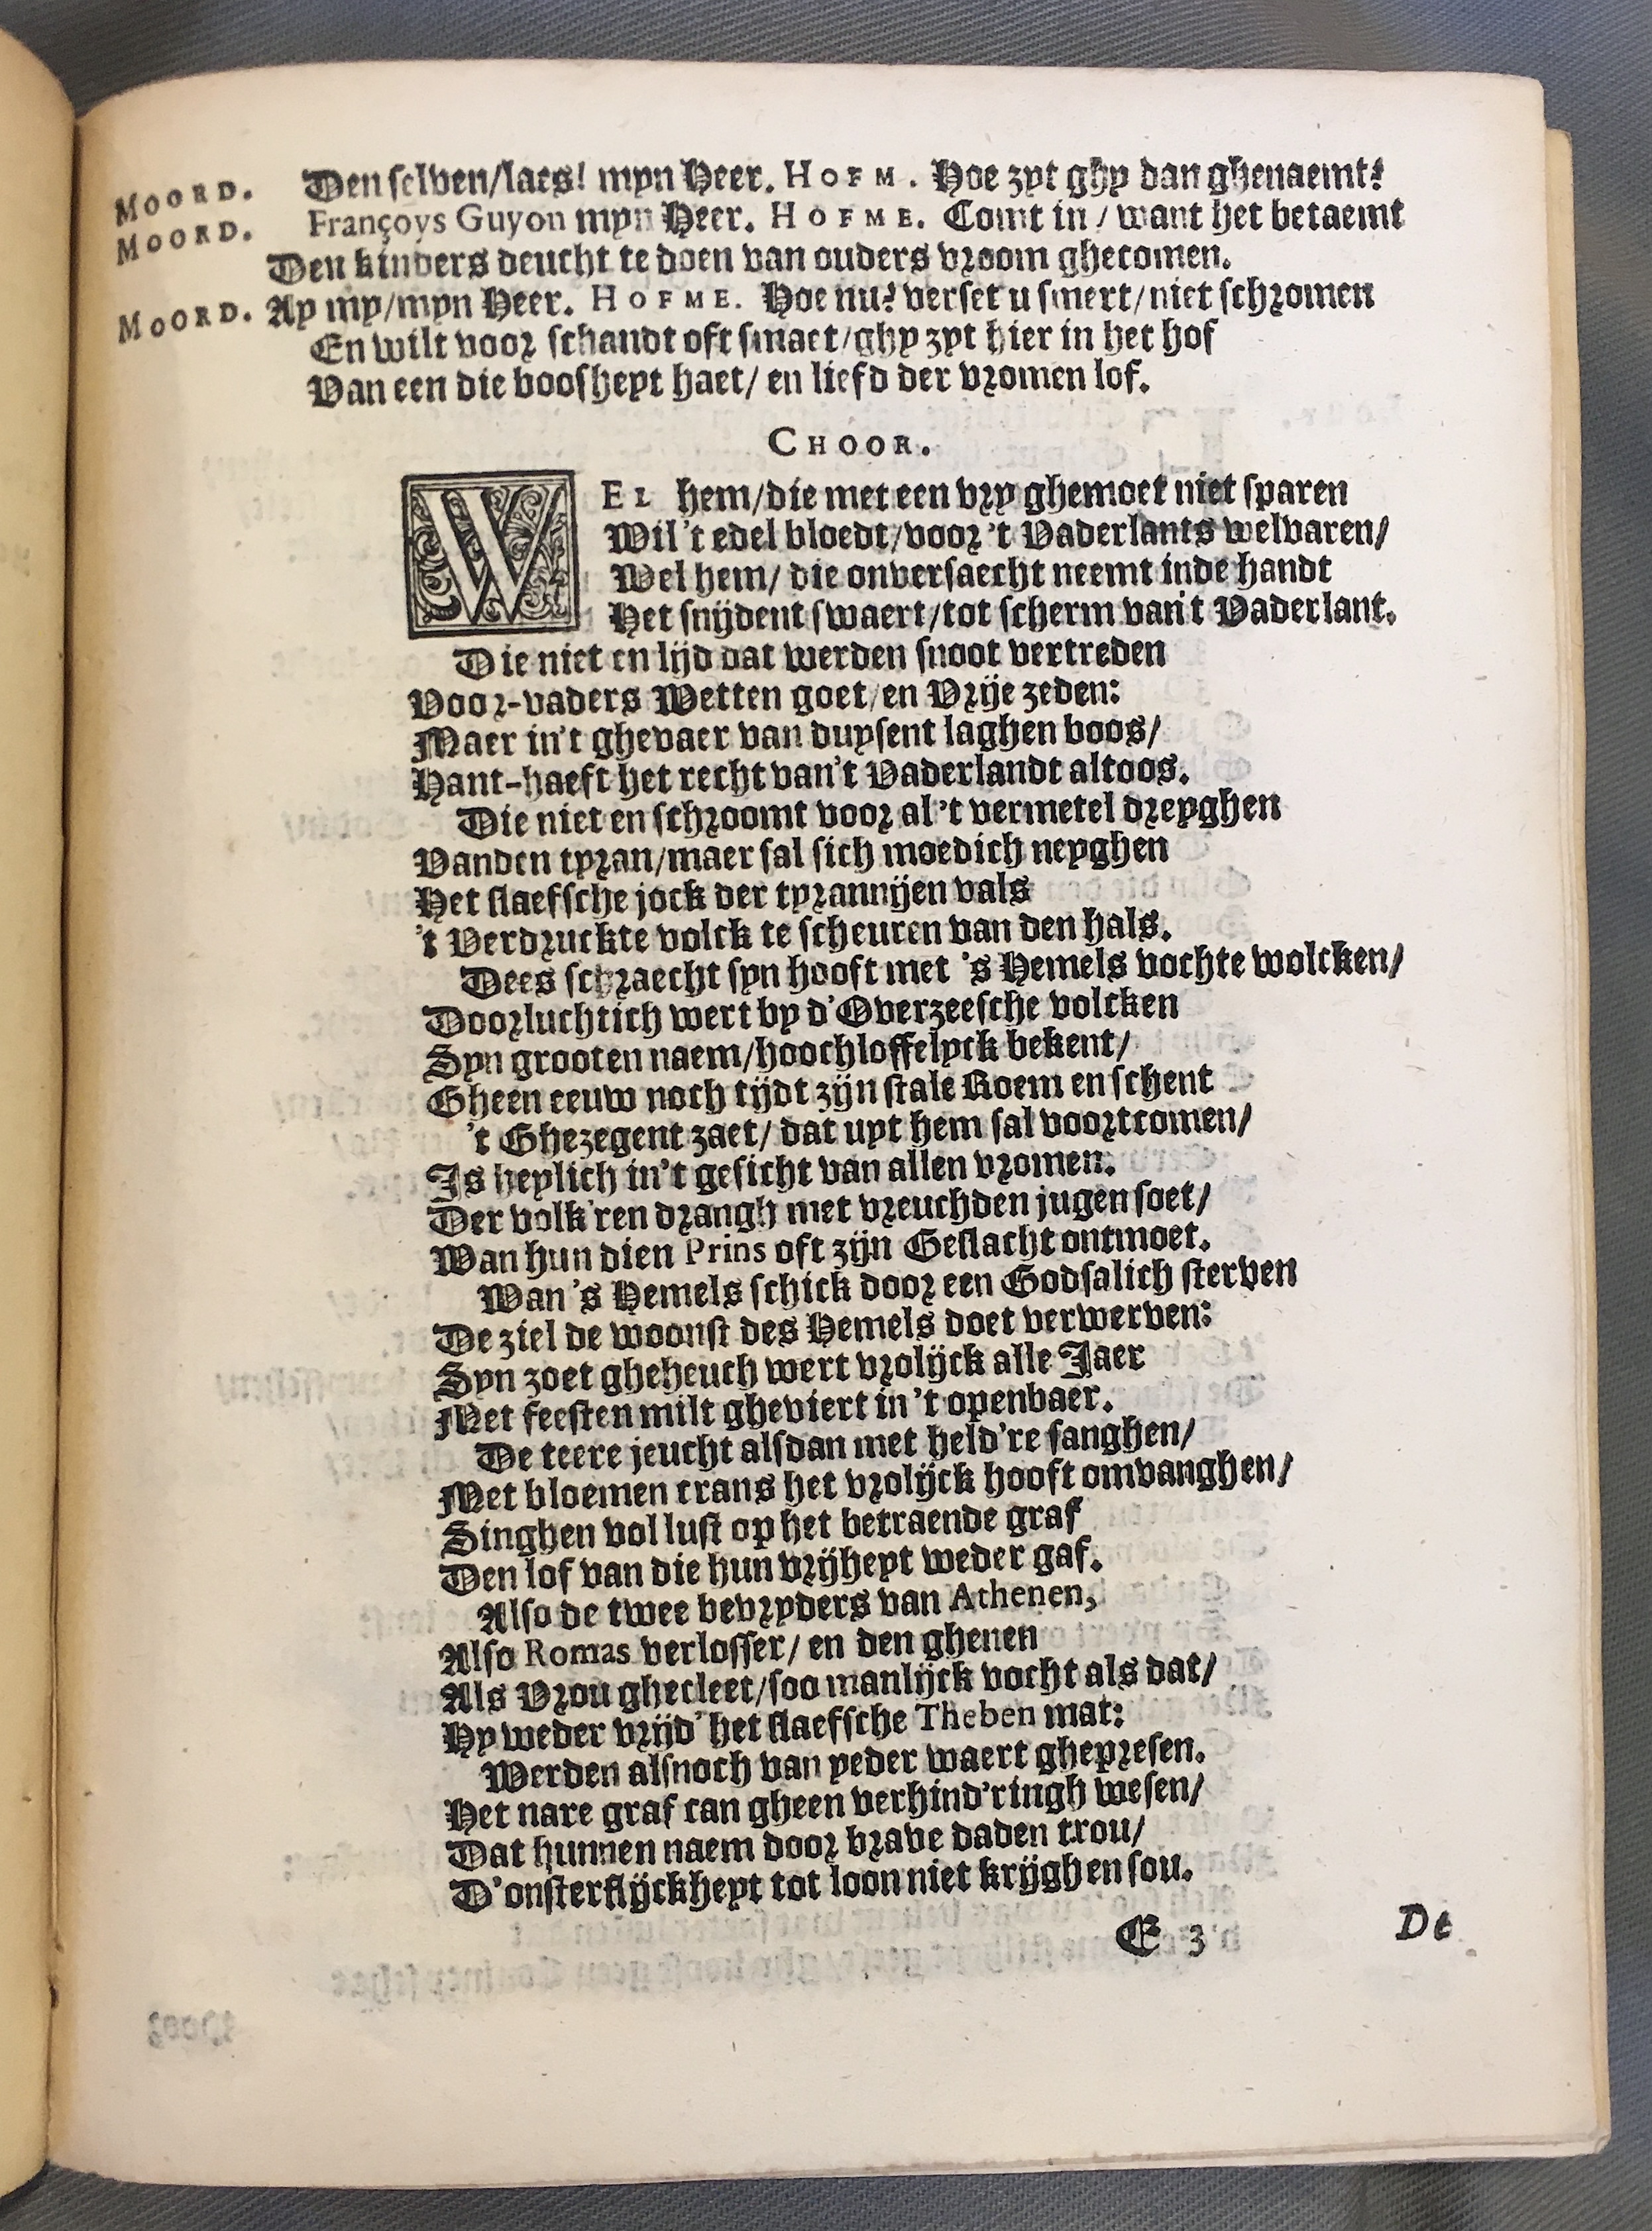 MOORD. Den selven/laes! myn Heer. HOFM. Hoe zyt ghy dan ghenaemt?
MOORD. Françoys Guyon myn Heer. HOFME. Comt in / want het betaemt
Den kinders deucht te doen van ouders vroom ghecomen.
MOORD. Ay my/myn Heer. HOFME. Hoe nu? verset u smert/niet schromen
En wilt voor schandt oft smaet/ghy zyt hier in het hof
Van een die boosheyt haet/ en liefd der vromen lof.
CHOOR.
WEL hem/die met een vry ghemoet niet sparen
Wil 't edel bloedt/voor 't Vaderlants welvaren/
Wel hem/ die onversaecht neemt inde handt
Het snijdent swaert/tot scherm van't Vaderlant.
Die niet en lijd dat werden snoot vertreden
Voor-vaders Wetten goet/en Vrije zeden:
Maer in't ghevaer van duysent laghen boos/
Hant-haeft het recht van't Vaderlandt altoos.
Die niet en schroomt voor al 't vermetel dreyghen
Vanden tyran/maer sal sich moedich neyghen
Het slaefsche jock der tyrannijen vals
't Verdruckte volck te scheuren van den hals.
Dees schraecht syn hooft met 's Hemels vochte wolcken/
Doorluchtich wert by d'Overzeesche volcken
Syn grooten naem/hoochloffelyck bekent/
Gheen eeuw noch tijdt zijn stale Roem en schent
't Ghezegent zaet/ dat uyt hem sal voortcomen/
Is heylich in't gesicht van allen vromen.
Der volk'ren drangh met vreuchden jugen soet/
Wan hun dien Prins oft zijn Geslacht ontmoet.
Wan 's Hemels schick door een Godsalich sterven
De ziel de woonst des Hemels doet verwerven:
Syn zoet gheheuch wert vrolijck alle Jaer
Met feesten milt gheviert in 't openbaer.
De teere jeucht alsdan met held're sanghen/
Met bloemen crans het vrolijck hooft omvanghen/
Singhen vol lust op het betraende graf
Den lof van die hun vrijheyt weder gaf.
Also de twee bevryders van Athenen,
Also Romas verlosser/ en den ghenen
Als Vrou ghecleet/soo manlijck vocht als dat/
Hy weder vrijd' het slaefsche Theben mat:
Werden alsnoch van yeder waert ghepresen.
Het nare graf can gheen verhind'ringh wesen/
Dat hunnen naem door brave daden trou/
D'onsterflijckheyt tot loon niet krijghen sou.
E 3 De